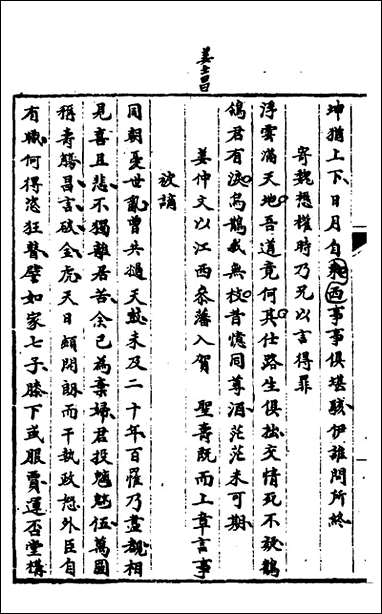 姜士昌
坤猶上下日月自東西事事俱堪駭伊誰問所終
寄魏懋權時乃兄以言得罪
浮雲滿天地吾道竟何其仕路生俱拙交情死不疑鶺
鴒君有淚烏鵲我無枝昔憶同尊酒茫茫未可期
姜仲文以江西參藩入賀 聖壽既而上章言事
被謫
同朝憂世亂曾共撾天鼓未及二十年百罹乃盡覩相
見喜且悲不獨離居苦余已為棄婦君投魑魅伍萬國
稱壽觴昌言破金虎天日頗開朗而干執政怒外臣自
有職何得恣狂瞽譬如家七子膝下或服賈運否堂構